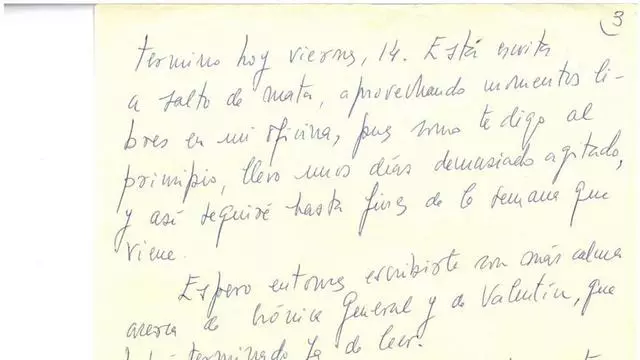 3
termino hoy viernes, 14. Está escrita
a salto de mata, aprovechando momentos li-
bres en mi oficina, pues como te digo al
principio, llevo unos días demasiado agitado,
y así seguiré hasta fines de la semana que
viene.
Espero entonces escribirte con más calma
acerca de Crónica General y de Valentín, que
terminado ya de leer.